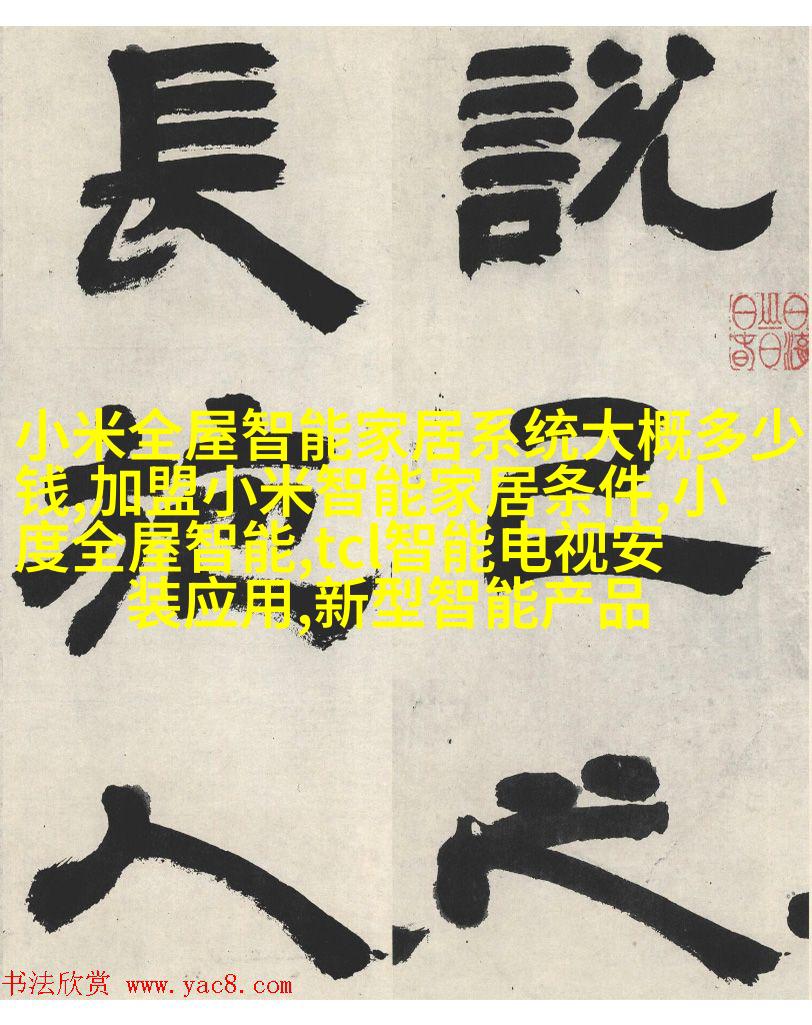 説己之
長施人
小米全屋智能家居系统大概多少
钱,加盟小米智能家居条件,小
度全屋智能,tcl智能电视安
装应用,新型智能产品
书法欣赏 www.yac8.com